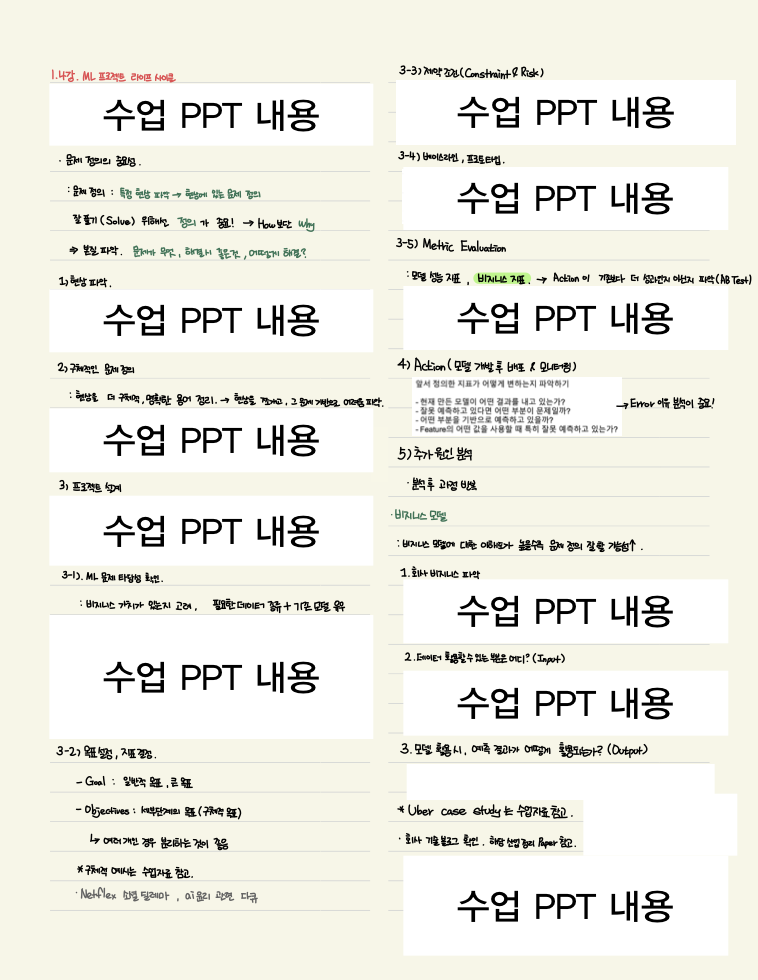 1.4강. ML 프로젝트 라이프 사이클
수업 PPT 내용
· 문제 정의의 중요성.
: 문제 정의 : 특정 현상 파악 → 현상에 있는 문제 정의
잘 풀기(Solve) 위해선 정의가 중요! → How보단 Why
⇒ 본질 파악. 문제가 무엇, 해결시 좋은것, 어떻게 해결?
1) 현상 파악.
수업 PPT 내용
2) 구체적인 문제 정의
: 현상을 더 구체적, 명확한 용어 정리. → 현상을 쪼개고, 그 문제 기반으로 어려움 파악.
수업 PPT 내용
3) 프로젝트 설계
수업 PPT 내용
3-1). ML 문제 타당성 확인.
: 비지니스 가치가 있는지 고려, 필요한 데이터 종류 + 기존 모델 유무
수업 PPT 내용
3-2) 목표 설정, 지표 결정.
- Goal : 일반적 목표, 큰 목표
- Objectives : 세부단계의 목표 (구체적 목표)
↳ 여러 개인 경우 분리하는 것이 좋음
* 구체적 예시는 수업자료 참고.
· Netflex 소셜 딜레마, ai 윤리 관련 다큐
3-3) 제약 조건(Constraint & Risk)
수업 PPT 내용
3-4) 베이스라인, 프로토타입.
수업 PPT 내용
3-5) Metric Evaluation
: 모델 성능 지표, 비지니스 지표. → Action이 기존보다 더 성과인지 아닌지 파악(AB Test)
수업 PPT 내용
4) Action (모델 개발 후 배포 & 모니터링)
앞서 정의한 지표가 어떻게 변하는지 파악하기
- 현재 만든 모델이 어떤 결과를 내고 있는가?
- 잘못 예측하고 있다면 어떤 부분이 문제일까?
- 어떤 부분을 기반으로 예측하고 있을까?
- Feature의 어떤 값을 사용할 때 특히 잘못 예측하고 있는가?
→ Error 이유 분석이 중요!
5) 추가 원인 분석
· 분석 후 과정 반복
· 비지니스 모델
: 비지니스 모델에 대한 이해도가 높을수록 문제 정의 잘 할 가능성↑.
1. 회사 비지니스 파악
수업 PPT 내용
2. 데이터 활용할 수 있는 부분은 어디? (Input)
수업 PPT 내용
3. 모델 활용시, 예측 결과가 어떻게 활용되는가? (Output)
* Uber case study는 수업자료 참고.
· 회사 기술 블로그 확인. 해당 산업 정리 Paper 참고.
수업 PPT 내용